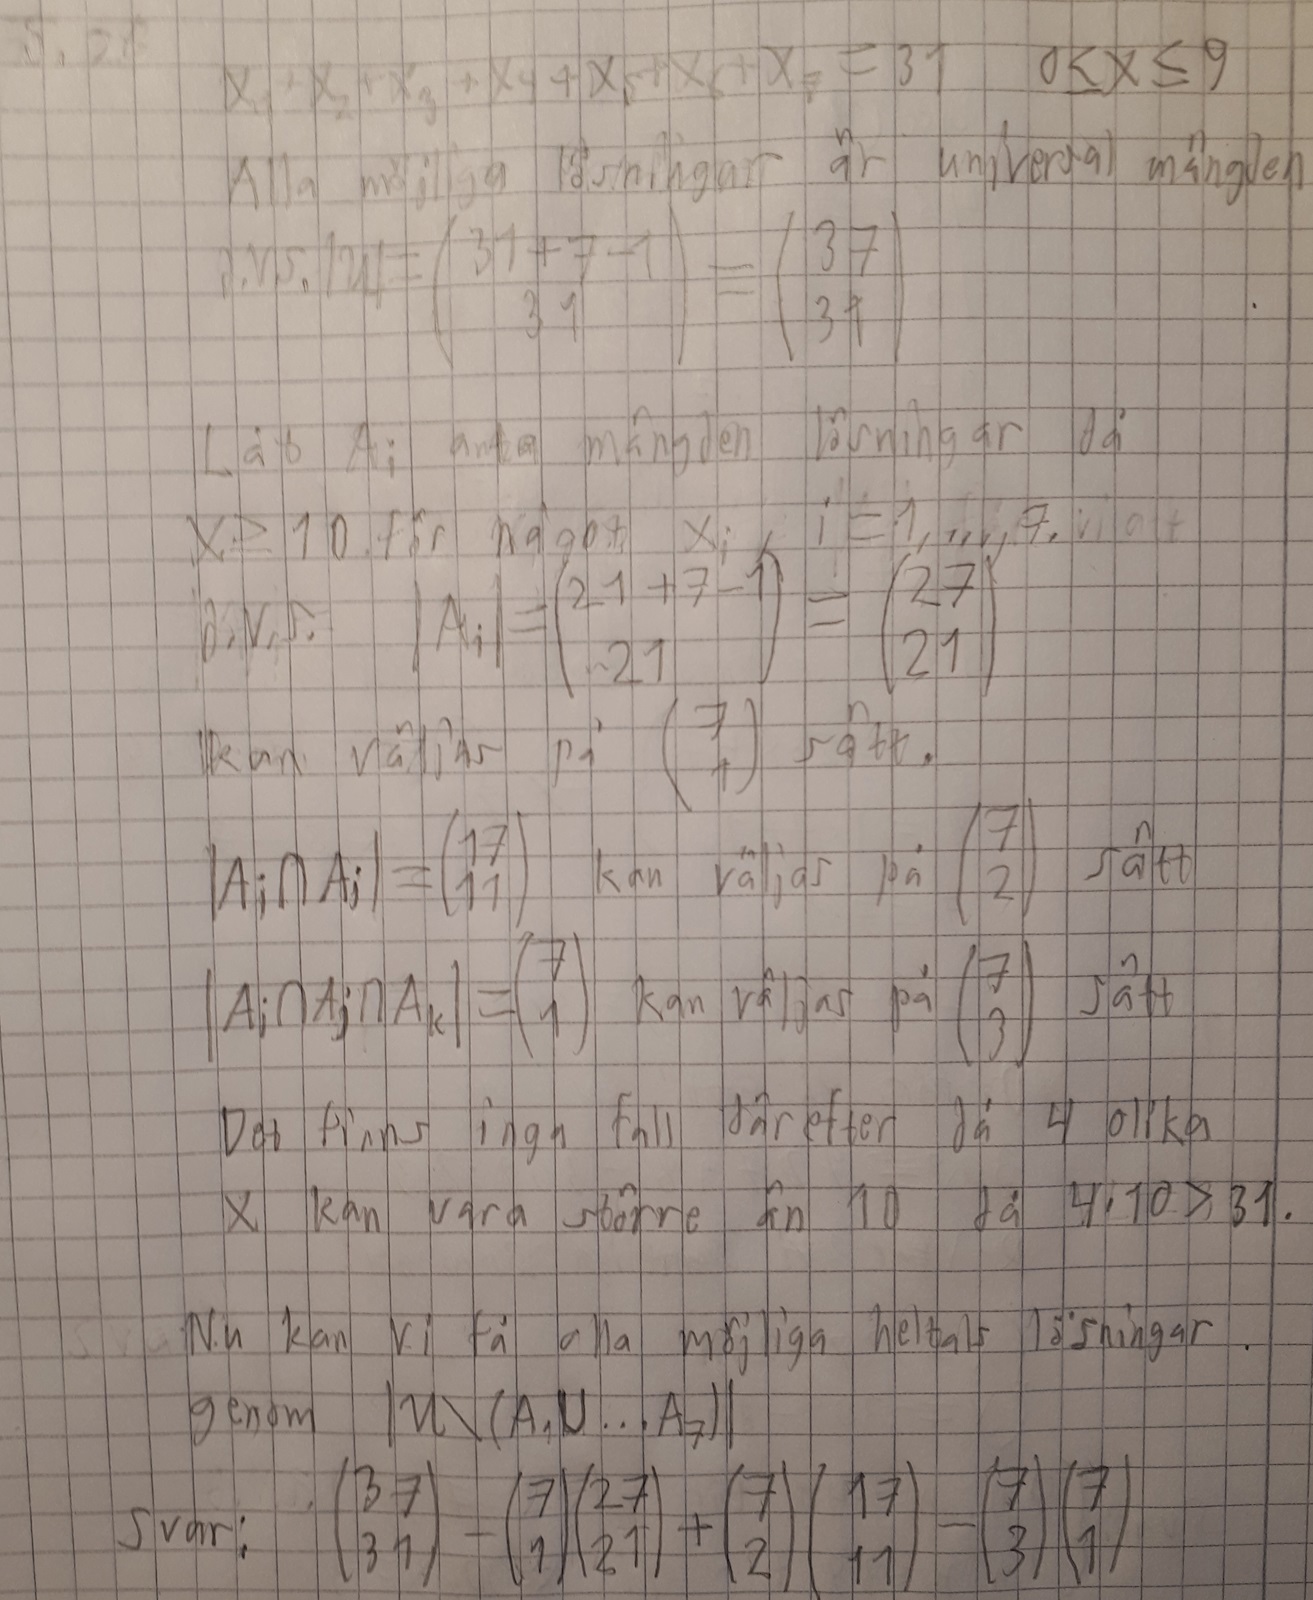 x₁ + x₂ + x₃ + x₄ + x₅ + x₆ + x₇ = 31 0 ≤ x ≤ 9
Alla möjliga lösningar är universal mängden
d.v.s. |U| = (31+7-1 över 31) = (37 över 31)
Låt Aᵢ anta mängden lösningar då
x ≥ 10 för något xᵢ, i = 1, ..., 7.
d.v.s. |Aᵢ| = (21+7-1 över 21) = (27 över 21)
kan väljas på (7 över 1) sätt.
|Aᵢ∩Aⱼ| = (17 över 11) kan väljas på (7 över 2) sätt
|Aᵢ∩Aⱼ∩Aₖ| = (7 över 1) kan väljas på (7 över 3) sätt
Det finns inga fall därefter då 4 olika
x kan vara större än 10 då 4·10 > 31.
Nu kan vi få alla möjliga heltals lösningar
genom |U\(A₁∪...A₇)|
svar: (37 över 31) - (7 över 1)(27 över 21) + (7 över 2)(17 över 11) - (7 över 3)(7 över 1)